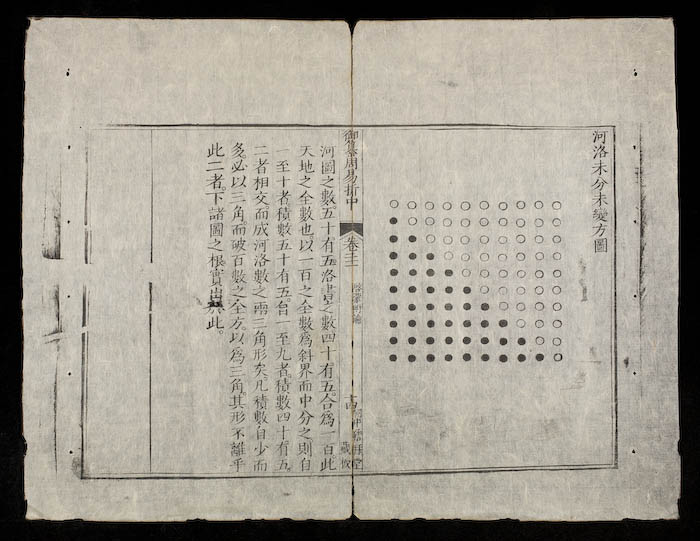 河洛未分未變方圖
御纂周易折中
卷二十二
啓蒙附論
河圖之數。五十有五。洛書之數四十有五。合為一百。此
天地之全數也。以一百之全數為斜界而中分之。則自
一至十者。積數五十有五。自一至九者。積數四十有五。
二者相交。而成河洛數之兩三角形矣。凡積數自少而
多。必以三角。而破百數之全方。以為三角。其形不離乎
此二者。下諸圖之根。實出於此。